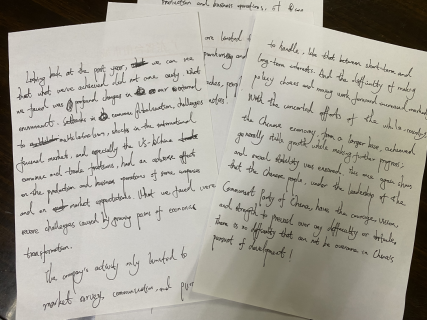 production and business operations, of some
Looking back at the past year, we can see
that what we've achieved did not come easily. What
we faced was profound changes in our external
environment. Setbacks in economic globalization, challenges
to multilateralism, shocks in the international
financial market, and especially the US-China
economic and trade frictions, had an adverse effect
on the production and business operations of some companies
and on market expectations. What we faced were
severe challenges caused by growing pains of economic
transformation.
The company's activity only limited to
market survey, communication, and
are limited to
to handle, like that between short-term and
long-term interests. And the difficulty of making
policy choices and moving work forward increased markedly.
With the concerted efforts of the whole
the Chinese economy, from a large base, achieved
generally stable growth while making further progress;
and social stability was ensured. This once again shows
that the Chinese people, under the leadership of the
Communist Party of China, have the courage, vision,
and strength to prevail over any difficulty or obstacle.
There is no difficulty that can not be overcome in China's
pursuit of development!